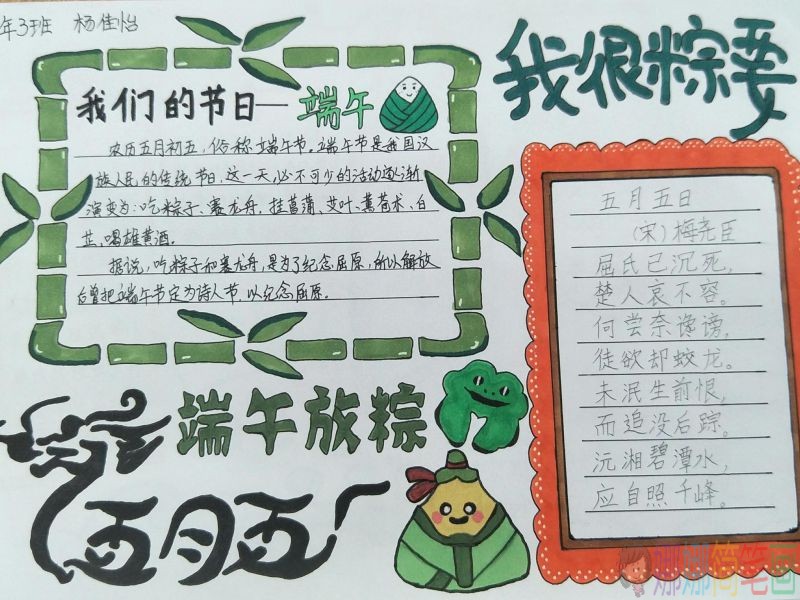 年3班 杨佳怡
我们的节日—端午
农历五月初五，俗称端午节。端午节是我国汉
族人民的传统节日，这一天必不可少的活动逐渐
演变为：吃粽子、赛龙舟，挂菖蒲、艾叶、薰苍术、白
芷，喝雄黄酒。
据说，吃粽子和赛龙舟，是为了纪念屈原，所以解放
后曾把端午节定为诗人节，以纪念屈原。
我很粽要
五月五日
（宋）梅尧臣
屈氏已沉死，
楚人哀不容。
何尝奈谗谤，
徒欲却蛟龙。
未泯生前恨，
而追没后踪。
沅湘碧潭水，
应自照千峰。
端午放粽
五月五
娜娜简笔画